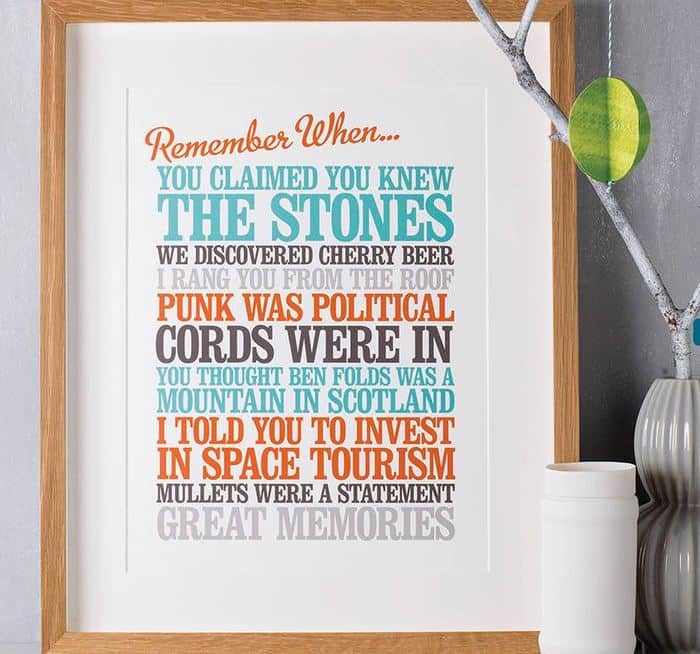 Remember When...
YOU CLAIMED YOU KNEW
THE STONES
WE DISCOVERED CHERRY BEER
I RANG YOU FROM THE ROOF
PUNK WAS POLITICAL
CORDS WERE IN
YOU THOUGHT BEN FOLDS WAS A
MOUNTAIN IN SCOTLAND
I TOLD YOU TO INVEST
IN SPACE TOURISM
MULLETS WERE A STATEMENT
GREAT MEMORIES